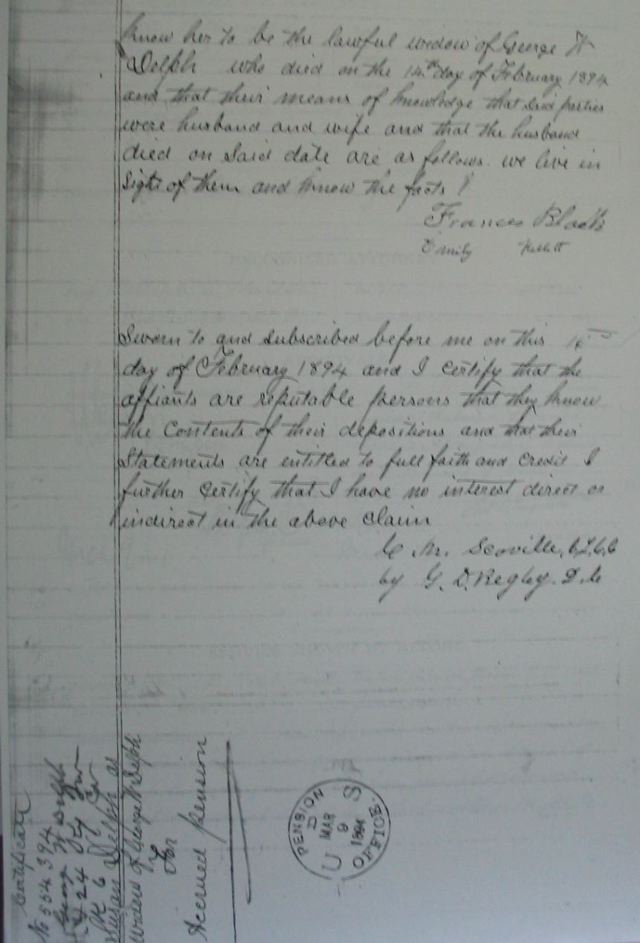 know her to be the lawful widow of George W
Delph who died on the 14th day of February 1894
and that their means of knowledge that said parties
were husband and wife and that the husband
died on said date are as follows. we live in
sight of them and know the facts
Frances Black
Emily
Sworn to and subscribed before me on this
day of February 1894 and I certify that the
affiants are reputable persons that they know
the contents of their depositions and that their
statements are entitled to full faith and credit I
further certify that I have no interest direct or
indirect in the above claim
C M. Scoville,
by G. D.
Certificate
No 554394
George W Delph
24
Susan Delph as
widow of George W Delph
for
Accrued pension
PENSION OFFICE
U S
MAR
9
1894